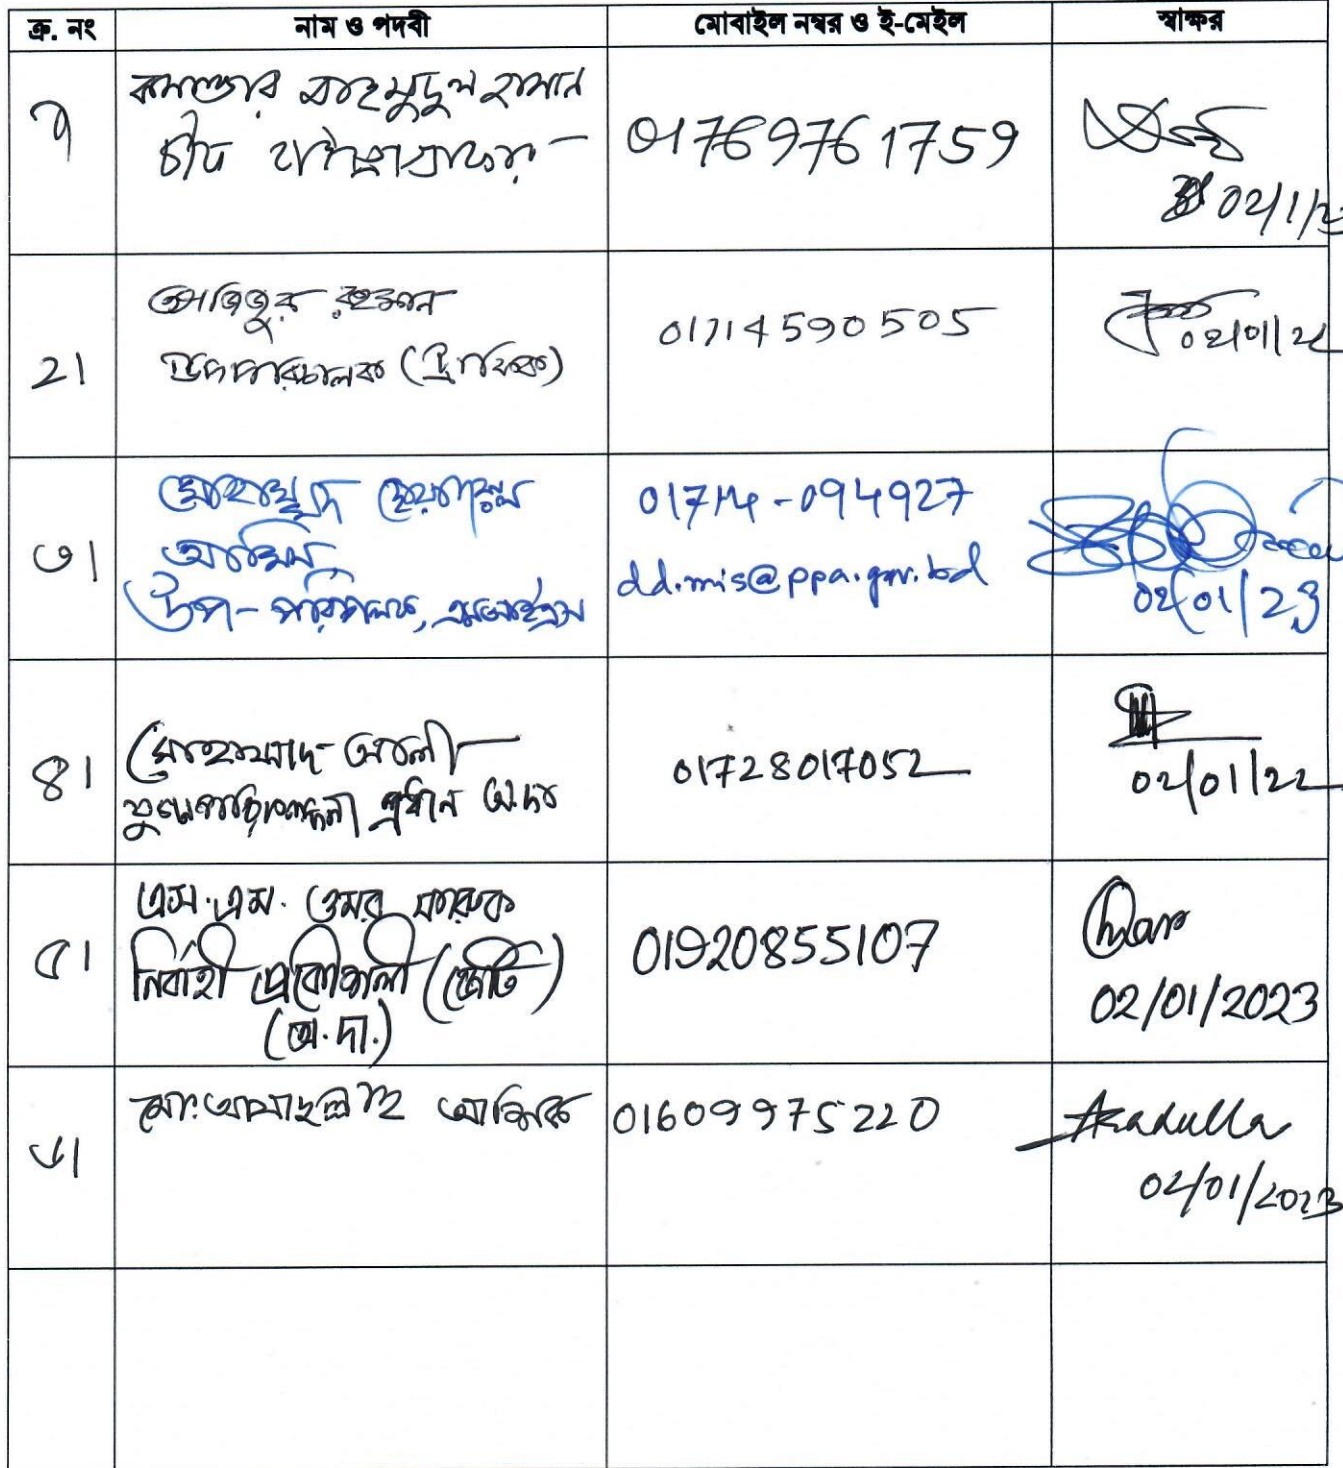 ক্র. নং নাম ও পদবী মোবাইল নম্বর ও ই-মেইল স্বাক্ষর
কমান্ডার মাহমুদুল হাসান
চীফ হাইড্রোগ্রাফার
01769761759
02/1/23
আজিজুর রহমান
উপপরিচালক (ট্রাফিক)
২।
01714590505
02/01/22
মোহাম্মদ সোহায়েল
উপ-পরিচালক, এমআইএস
৩।
01714-094927
dd.mis@ppa.gov.bd
02/01/23
মোহাম্মাদ আলী
প্রধান অঃদাঃ
৪।
01728017052
02/01/22
এস.এম. ওমর ফারুক
নির্বাহী প্রকৌশলী (জেটি)
(অ.দা.)
৫।
01920855107
02/01/2023
মো: আসাদুল্লাহ আশিক
৬।
01609975220
Asadulla
02/01/2023